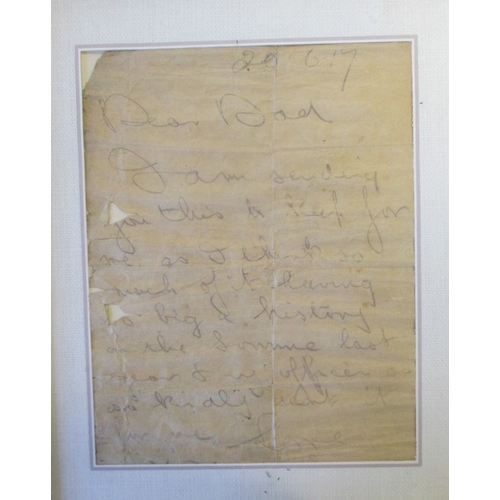 20 6.17
Dear Dad
I am sending
you this to keep for
me as I think so
much of it having
so big a history
on the Somme last
year & officer
as kindly it
for me